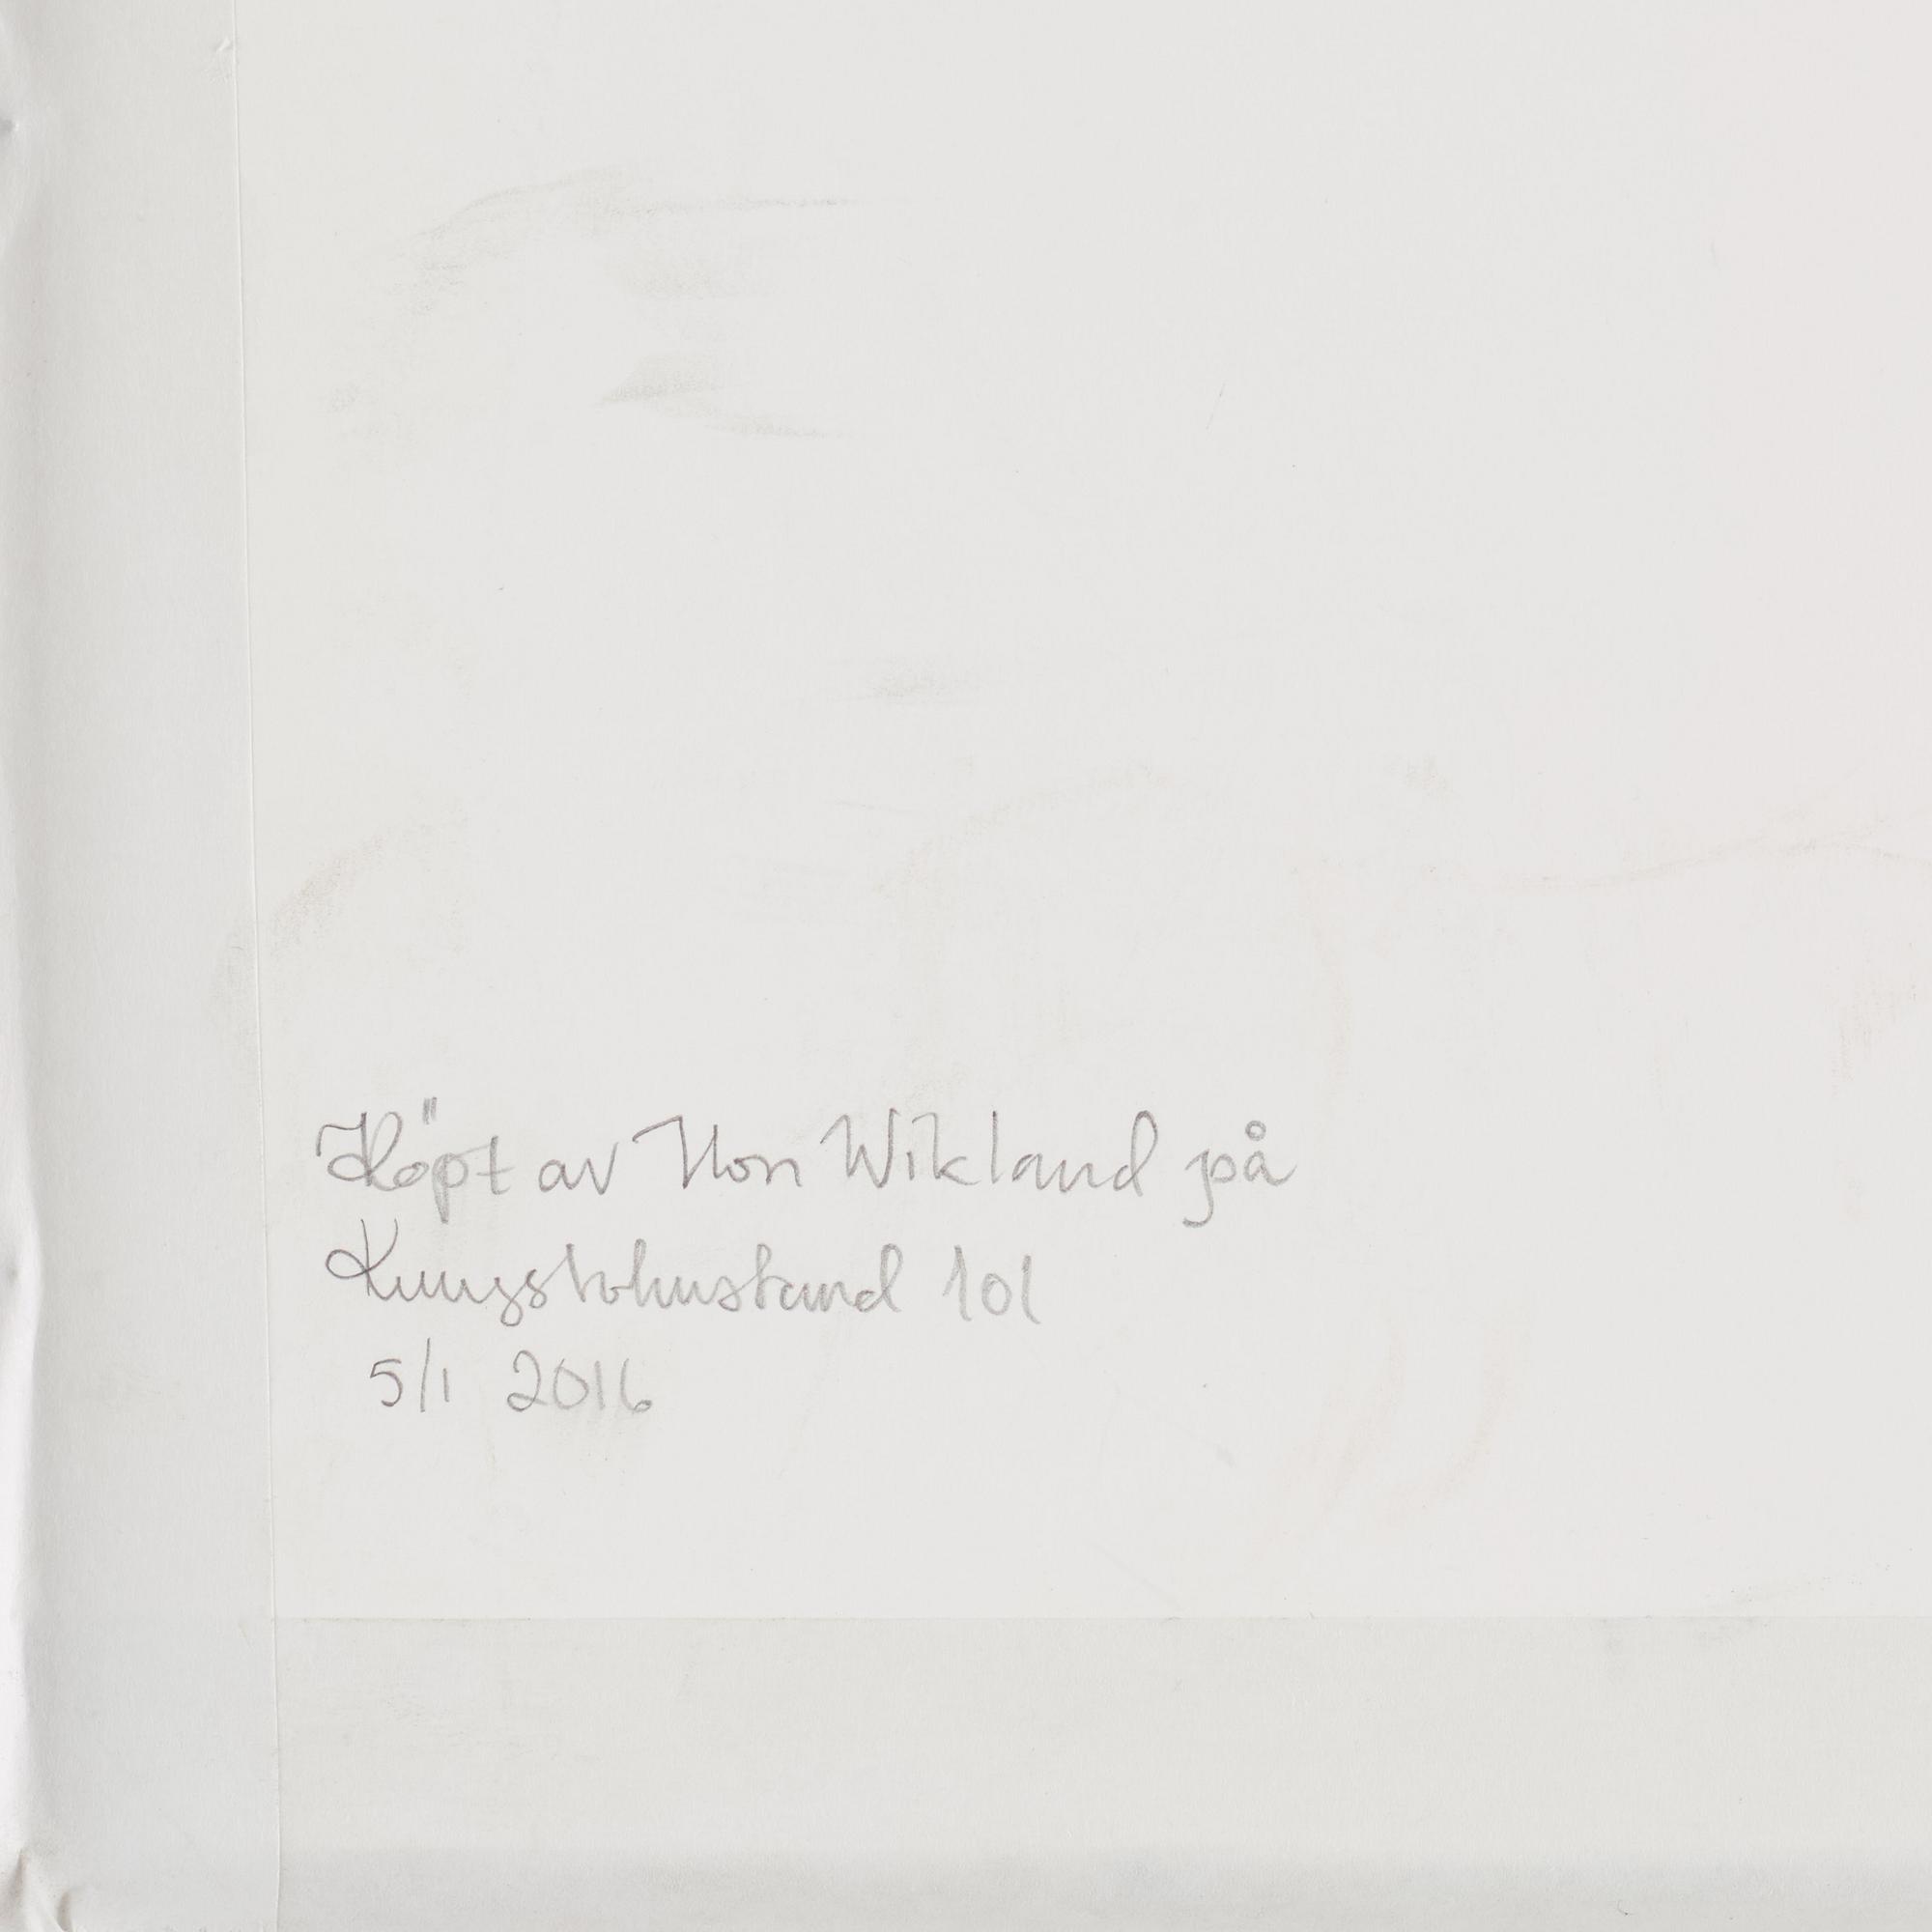 Köpt av Ilon Wikland på
Kungsholmstrand 101
5/1 2016